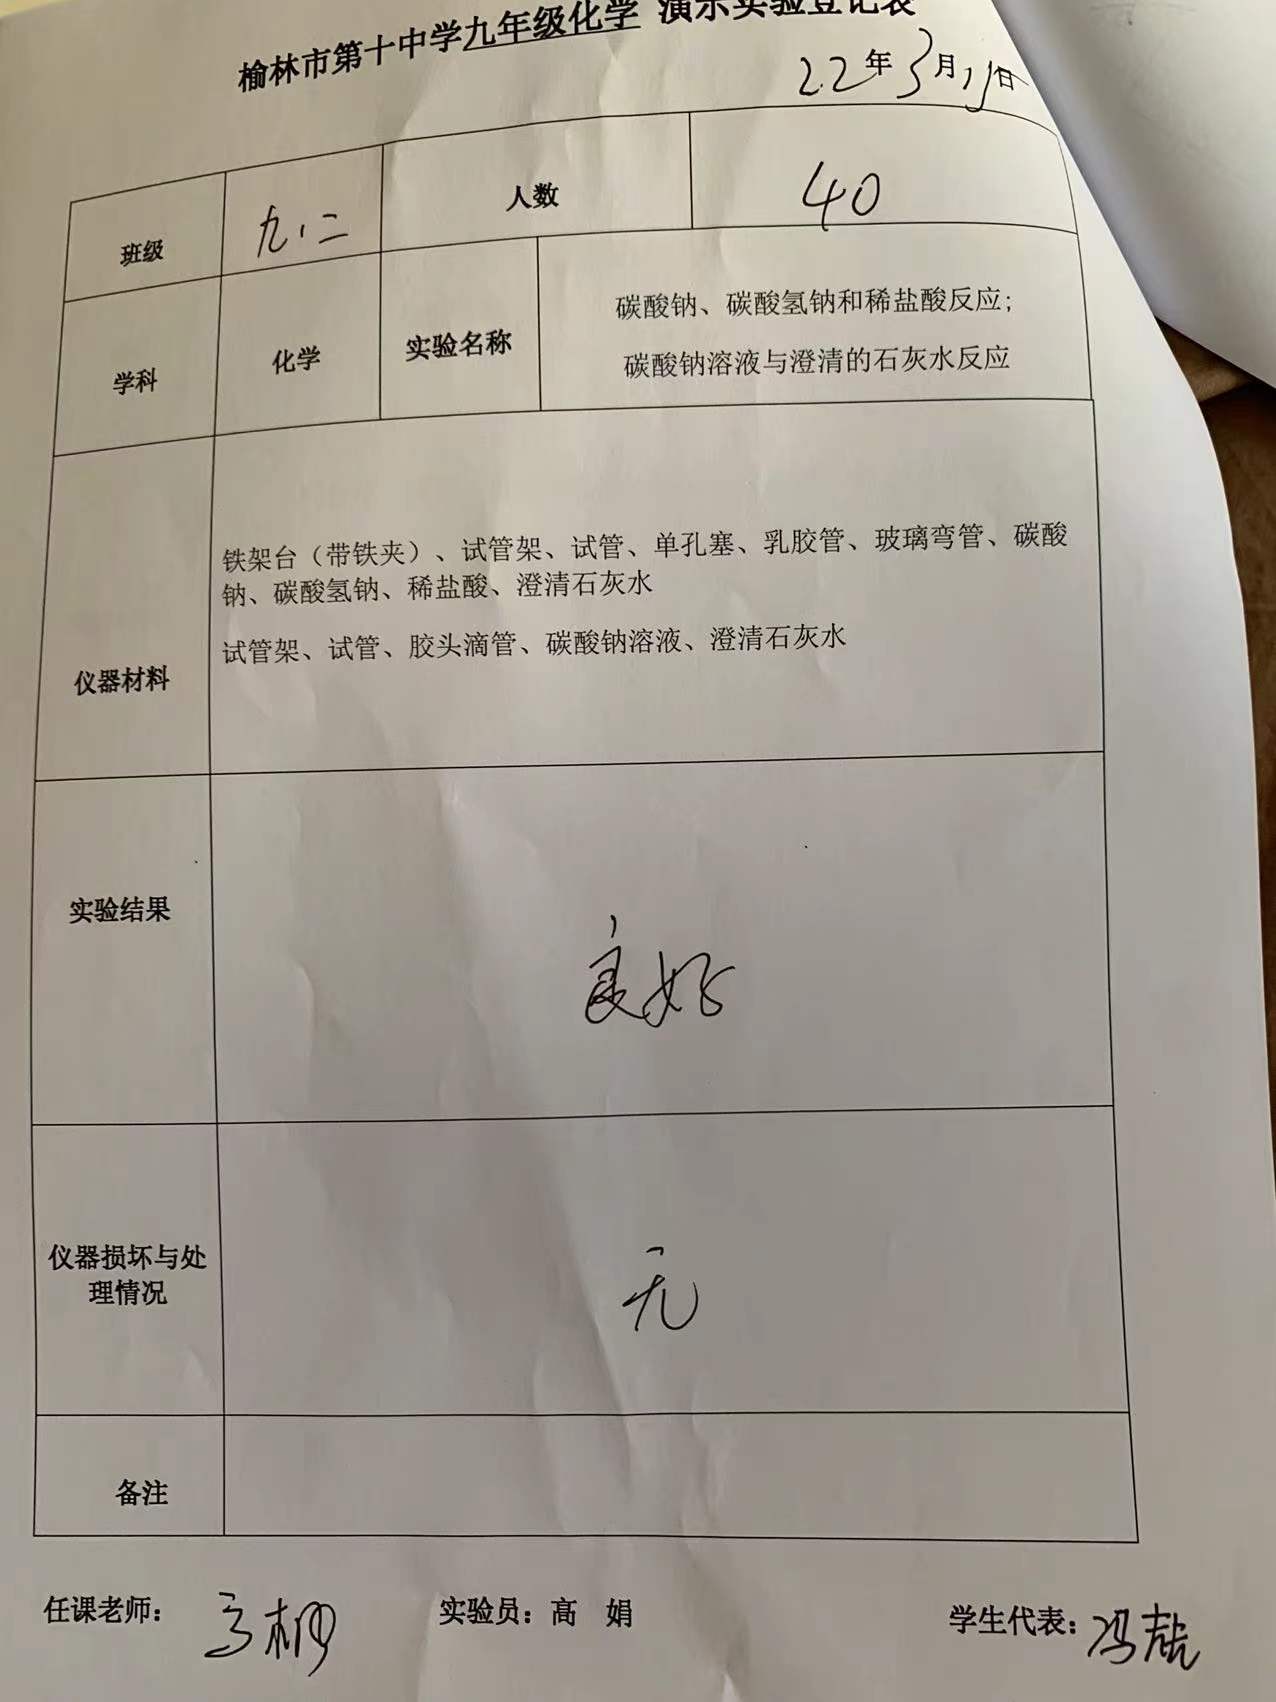 榆林市第十中学九年级化学 演示实验登记表
22年3月 日
班级 九.二 人数 40
学科 化学 实验名称 碳酸钠、碳酸氢钠和稀盐酸反应;
碳酸钠溶液与澄清的石灰水反应
铁架台（带铁夹）、试管架、试管、单孔塞、乳胶管、玻璃弯管、碳酸
钠、碳酸氢钠、稀盐酸、澄清石灰水
试管架、试管、胶头滴管、碳酸钠溶液、澄清石灰水
仪器材料
实验结果
良好
仪器损坏与处
理情况
无
备注
任课老师: 高 实验员: 高 娟 学生代表: 冯